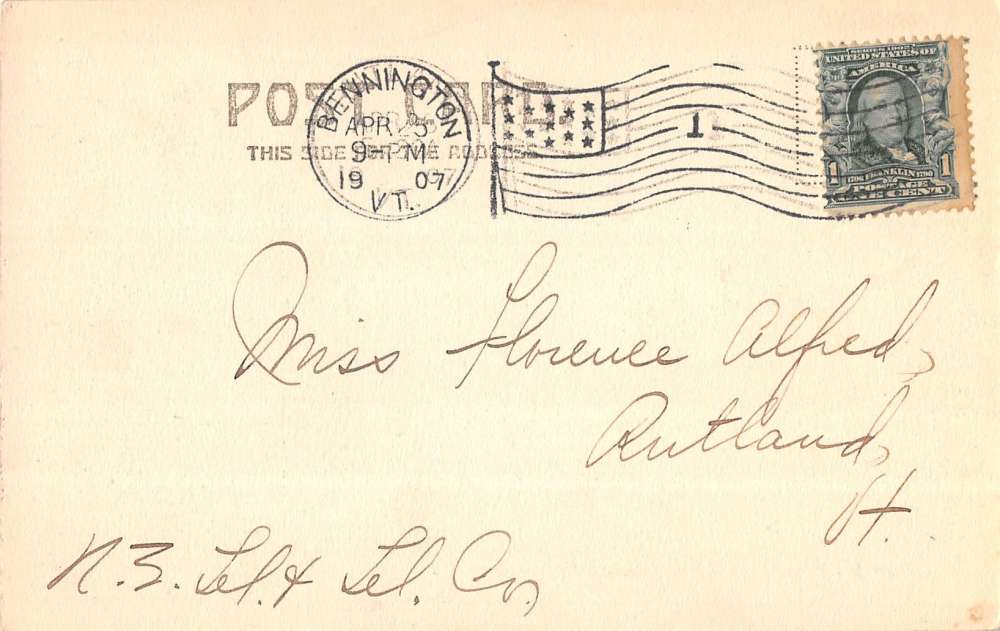 POST CARD
THIS SIDE FOR THE ADDRESS
BENNINGTON
APR 25
9-PM
1907
VT.
1
SERIES 1902
UNITED STATES OF
AMERICA
1706 FRANKLIN 1790
POSTAGE
1 ONE CENT 1
Miss Florence Alfred,
Rutland,
Vt.
N.E. Tel. & Tel. Co,